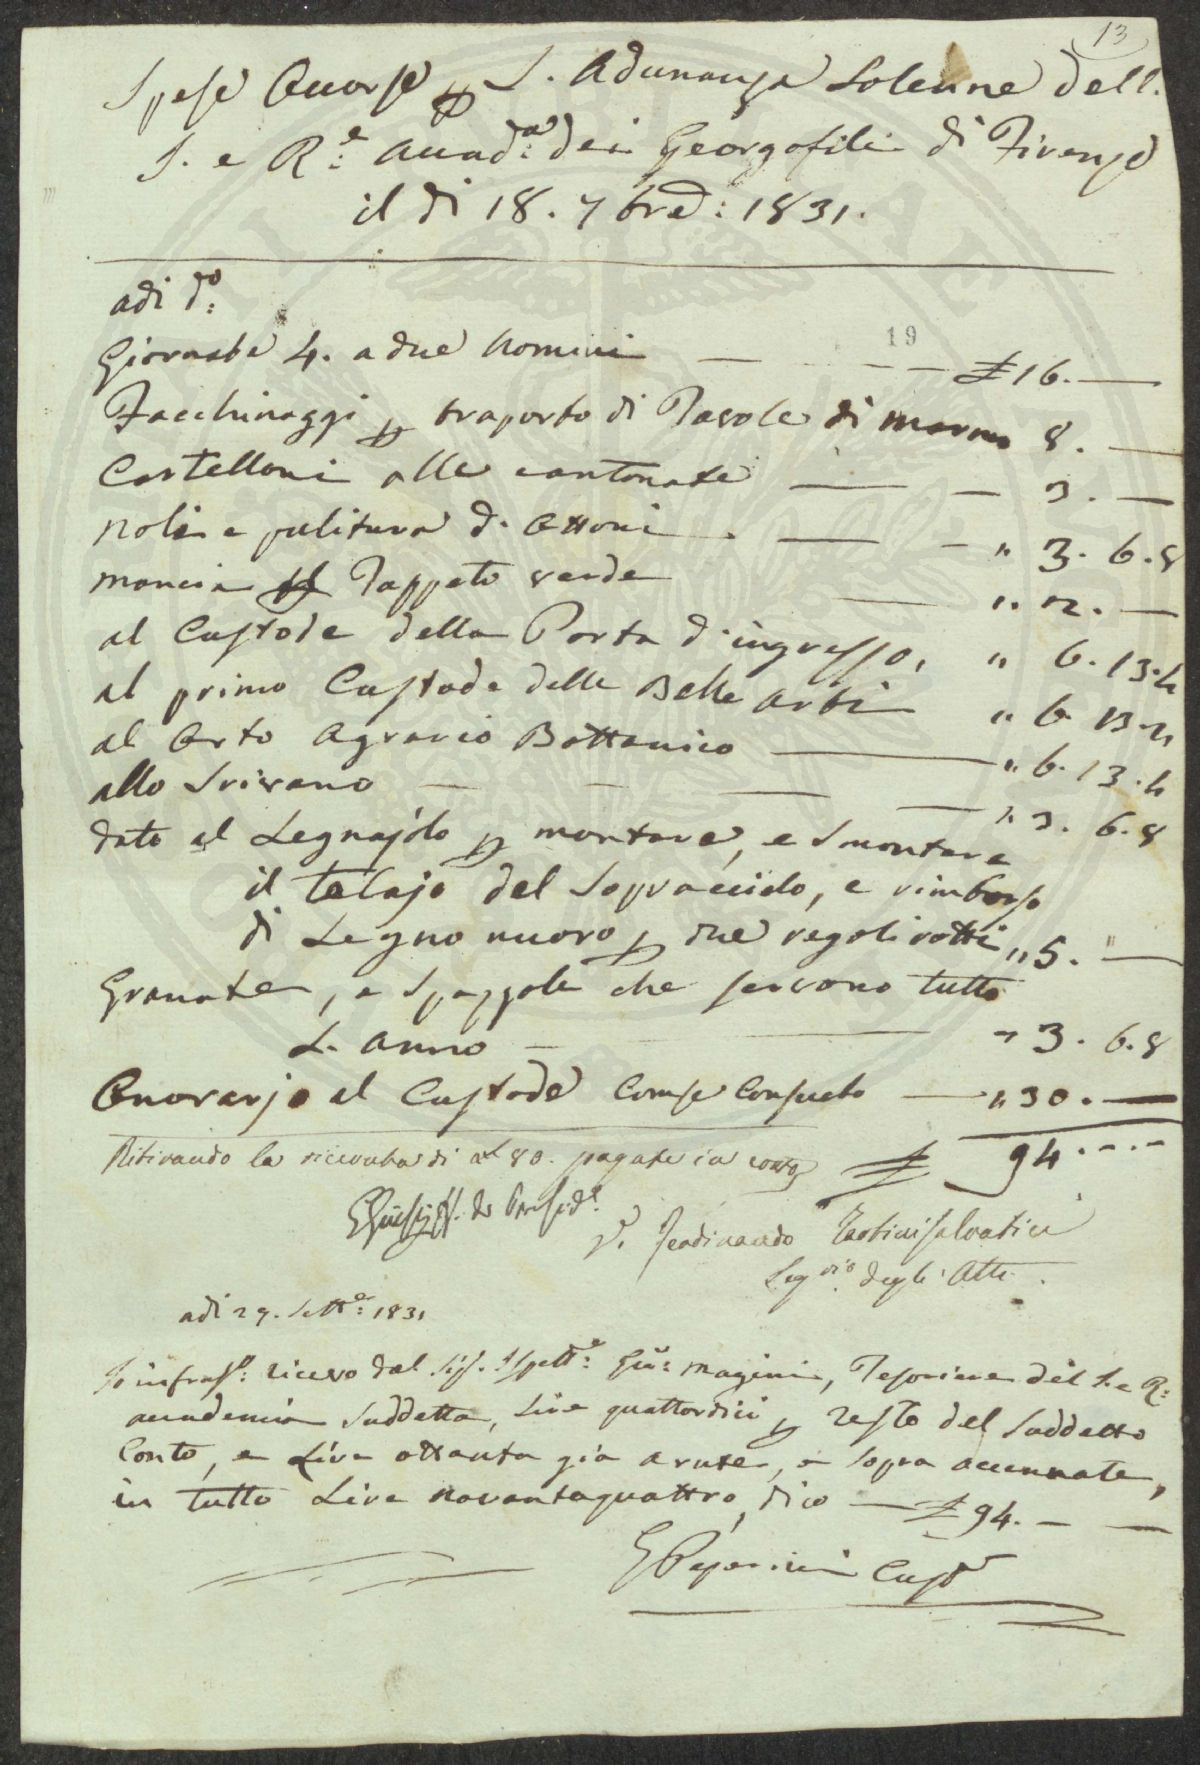 13
Spese Occorse p L. Adunanza Solenne dell.
I. e R.e Accad.a dei Georgofili di Firenze
il di 18. 7bre: 1831.
adi do:
19
Giornate 4. a due Homini — — — £ 16. —
Facchinaggi p traporto di Tavole di marmo 8. —
Cartelloni alle cantonate — — 3. —
Noli e pulitura d. Ottoni. — — " 3. 6. 8
mancia p Tappeto verde — " 2. —
al Custode della Porta d'ingresso, " 6. 13. 4
al primo Custode delle Belle Arti " 6 13. 4
al Orto Agrario Bottanico — " 6. 13. 4
allo Scrivano — — — — " 3. 6. 8
dato al Legnajolo p montare, e Smontare
il telajo del Sopraccielo, e rimborso
di Legno nuovo p due regoli rotti " 5. " —
Granate, e Spazzole che servono tutto
L. anno — — " 3. 6. 8
Onorarjo al Custode Come Consueto — " 30. —
Ritirando la ricevuta di £ 80. pagate in conto £ 94. - - -
de Presid.e
V. Ferdinando Tartini Salvatici
Seg.rio degli Atti.
adi 29. Sett.e: 1831
Io infras.o: ricevo dal Sig. Ispett.e: Giu: Magini, Tesoriere del I. e R.:
accademia Suddetta, Lire quattordici p resto del Suddetto
Conto, e Lire ottanta gia avute, e sopra accennate,
in tutto Lire novantaquattro, dico — £ 94. — —
Cusd.e